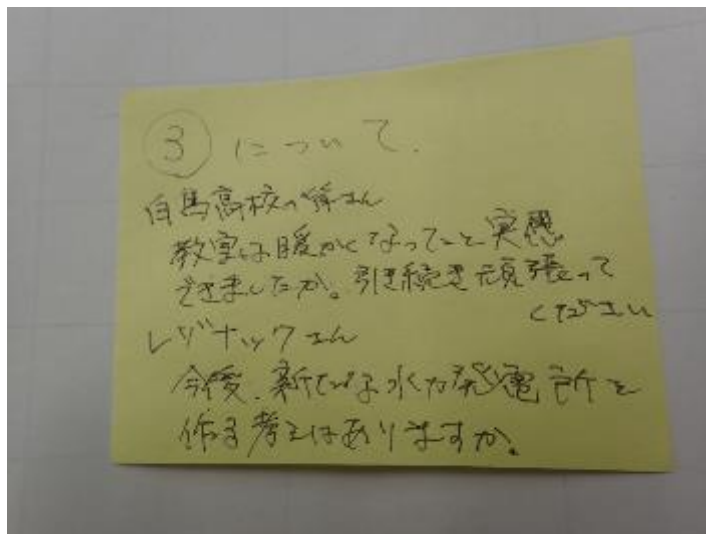 ③ について.
白馬高校の皆さん
教室は暖かくなってこと実感
できましたか。引き続き頑張って
ください
レジナックさん
今後、新たな水力発電所を
作る考えはありますか。